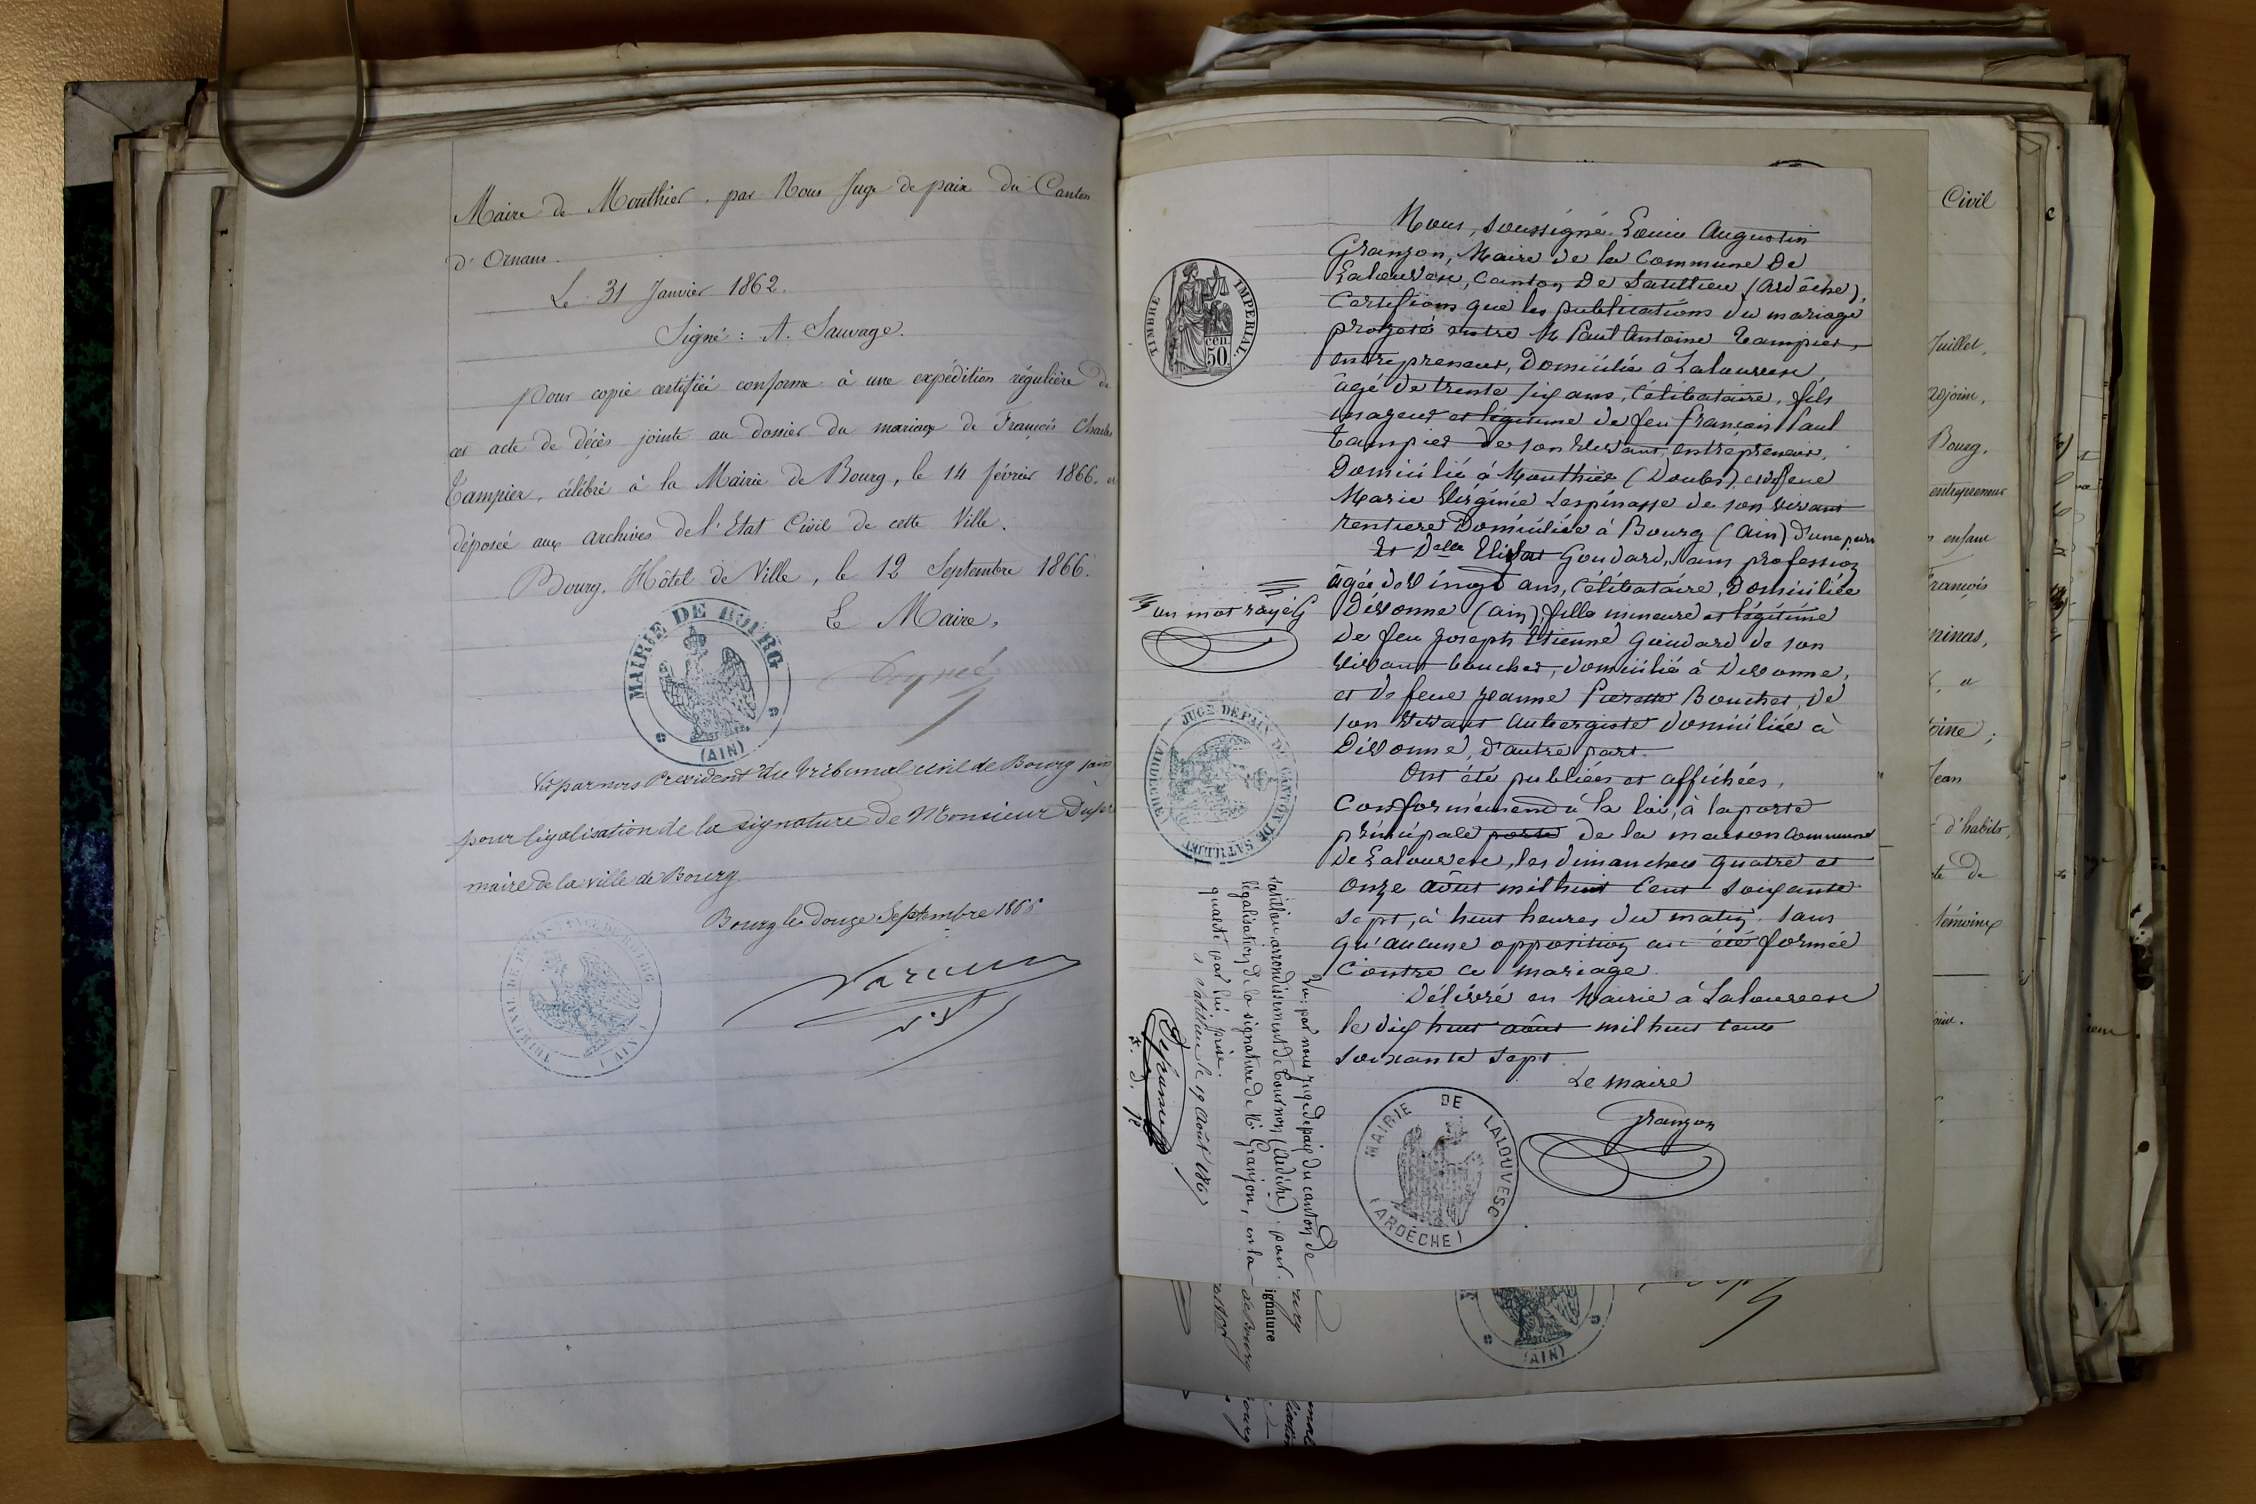 Maire de Mouthier, par Nous Juge de paix du Canton
d'Ornans.
Le 31 Janvier 1862.
Signé : A. Sauvage.
Pour copie certifiée conforme à une expédition régulière de
cet acte de décès jointe au dossier du mariage de François Charles
Tampier, célébré à la Mairie de Bourg, le 14 février 1866. et
déposée aux archives de l'Etat Civil de cette Ville.
Bourg, Hôtel de Ville, le 12 Septembre 1866.
Le Maire,
MAIRIE DE BOURG
(AIN)
Vu par nous Président du Tribunal civil de Bourg (ain)
pour légalisation de la signature de Monsieur
maire de la ville de Bourg.
Bourg le douze Septembre 1866
TIMBRE IMPERIAL.
50 cen
Nous, soussigné Louis Augustin
Granjon, Maire de la Commune de
Lalouvesc, Canton de Satillieu (Ardèche),
Certifions que les publications du mariage
projeté entre M. Paul Antoine Tampier,
entrepreneur, Domicilié à Lalouvesc,
âgé de trente six ans, Célibataire, fils
majeur et légitime de feu françois Paul
Tampier de son vivant, entrepreneur,
Domicilié à Mouthier (Doubs), et de feue
Marie Virginie Lespinasse de son vivant
rentière Domiciliée à Bourg (Ain) d'une part
Et Delle Elisa Goudard, sans profession
âgée de vingt ans, Célibataire, Domiciliée
Divonne (ain), fille mineure et légitime
de feu Joseph Etienne Goudard de son
vivant boucher, domicilié à Divonne,
et de feue Jeanne Pierrette Bouchet, de
son vivant Aubergiste domiciliée à
Divonne, d'autre part.
Ont été publiées et affichées,
Conformément à la loi, à la porte
principale porte de la maison Commune
de Lalouvesc, les dimanches quatre et
onze août mil huit Cent soixante
sept, à huit heures du matin, sans
qu'aucune opposition ait été formée
Contre ce mariage.
Délivré en Mairie à Lalouvesc
le dix huit août mil huit cent
soixante sept.
Le maire
Granjon
MAIRIE DE LALOUVESC
(ARDÈCHE)
un mot rayé G
JUGE DE PAIX DU CANTON DE SATILLIEU (ARDÈCHE)
Vu, par nous juge de paix du canton de
Satillieu arrondissement de Tournon (Ardèche) pour
légalisation de la signature de Mr Granjon, en la
qualité par lui prise.
à Satillieu le 19 Août 1867
ignature
de Bourg
(AIN)
Civil
Juillet,
adjoint,
Bourg,
entrepreneur
enfant
François
et
oine ;
Jean
d'habits,
te de
témoins